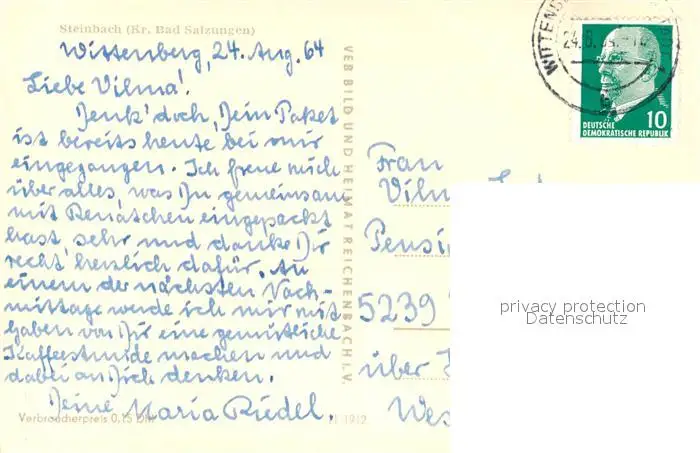 Steinbach (Kr. Bad Salzungen)
Wittenberg, 24. Aug. 64
Liebe Vilma!
Denk' doch, Dein Paket
ist bereits heute bei mir
eingegangen. Ich freue mich
über alles, was Du gemeinsam
mit Renätchen eingepackt
hast, sehr und danke Dir
recht herzlich dafür. An
einem der nächsten Nach-
mittage werde ich mir mit
Gaben von Dir eine gemütliche
Kaffeestunde machen und
dabei an Dich denken.
Deine Maria Riedel.
Verbraucherpreis 0,15 DM
VEB BILD UND HEIMAT REICHENBACH I. V.
WITTENB
24.8.64
10
DEUTSCHE
DEMOKRATISCHE REPUBLIK
Frau
Vilm
Pensi
5239
über
Wes
privacy protection
Datenschutz